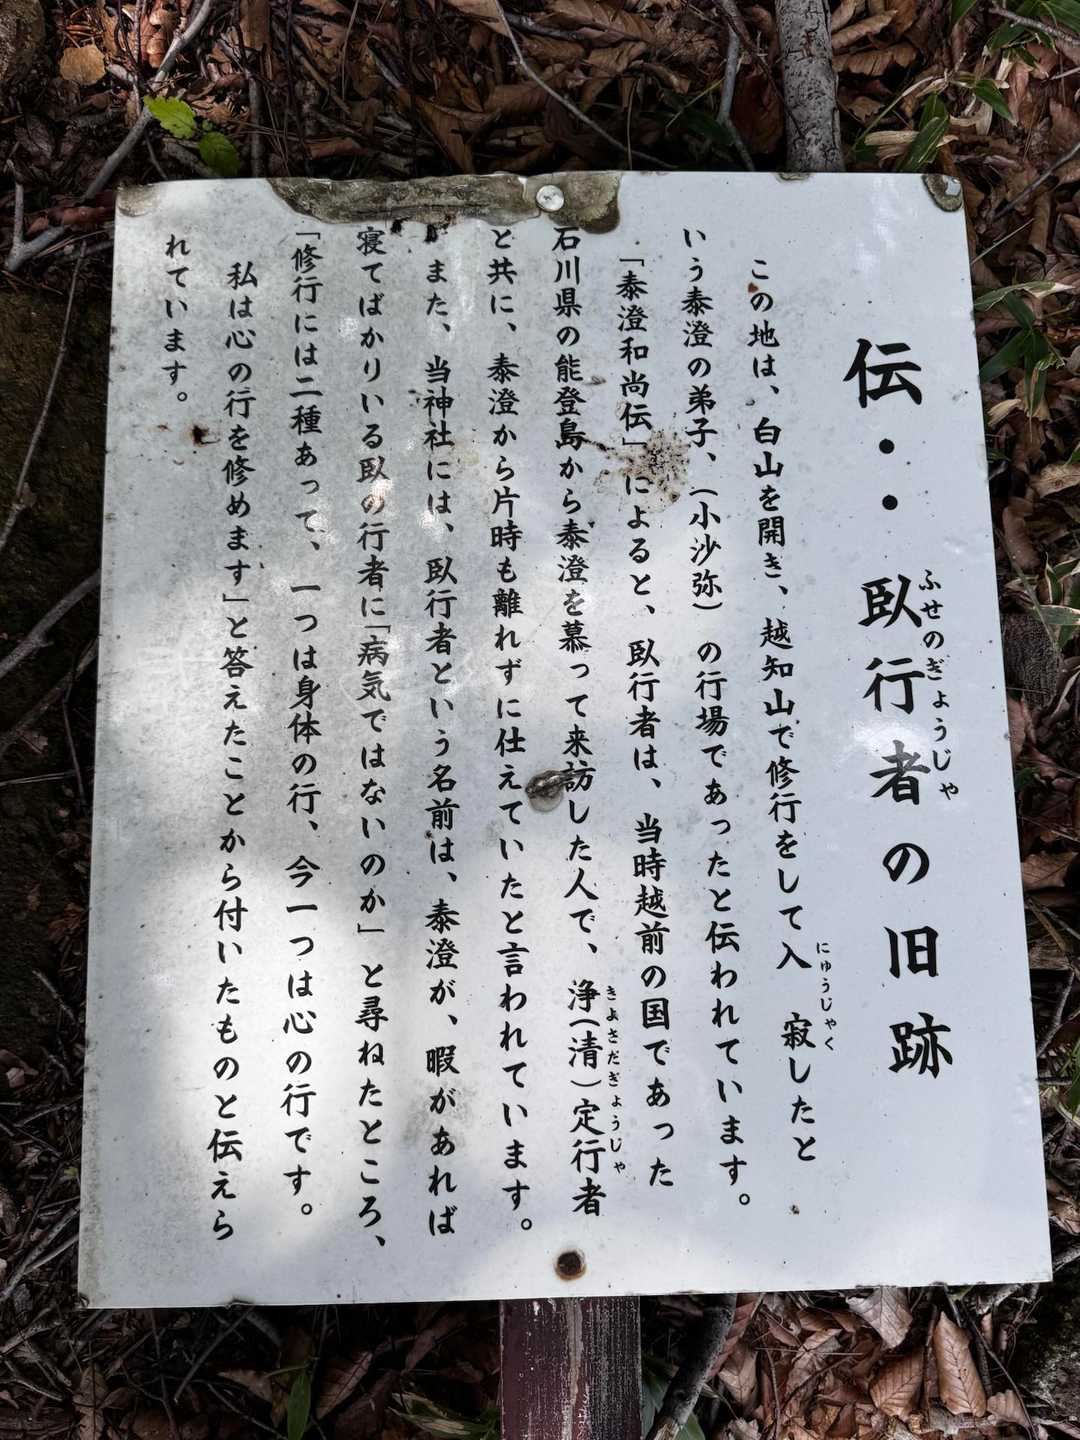 伝・・臥行者の旧跡
ふせのぎょうじゃ
この地は、白山を開き、越知山で修行をして入　寂したと
にゅうじゃく
いう泰澄の弟子、（小沙弥）の行場であったと伝われています。
「泰澄和尚伝」によると、臥行者は、当時越前の国であった
石川県の能登島から泰澄を慕って来訪した人で、浄（清）定行者
きよさだぎょうじゃ
と共に、泰澄から片時も離れずに仕えていたと言われています。
また、当神社には、臥行者という名前は、泰澄が、暇があれば
寝てばかりいる臥の行者に「病気ではないのか」と尋ねたところ、
「修行には二種あって、一つは身体の行、今一つは心の行です。
私は心の行を修めます」と答えたことから付いたものと伝えら
れています。